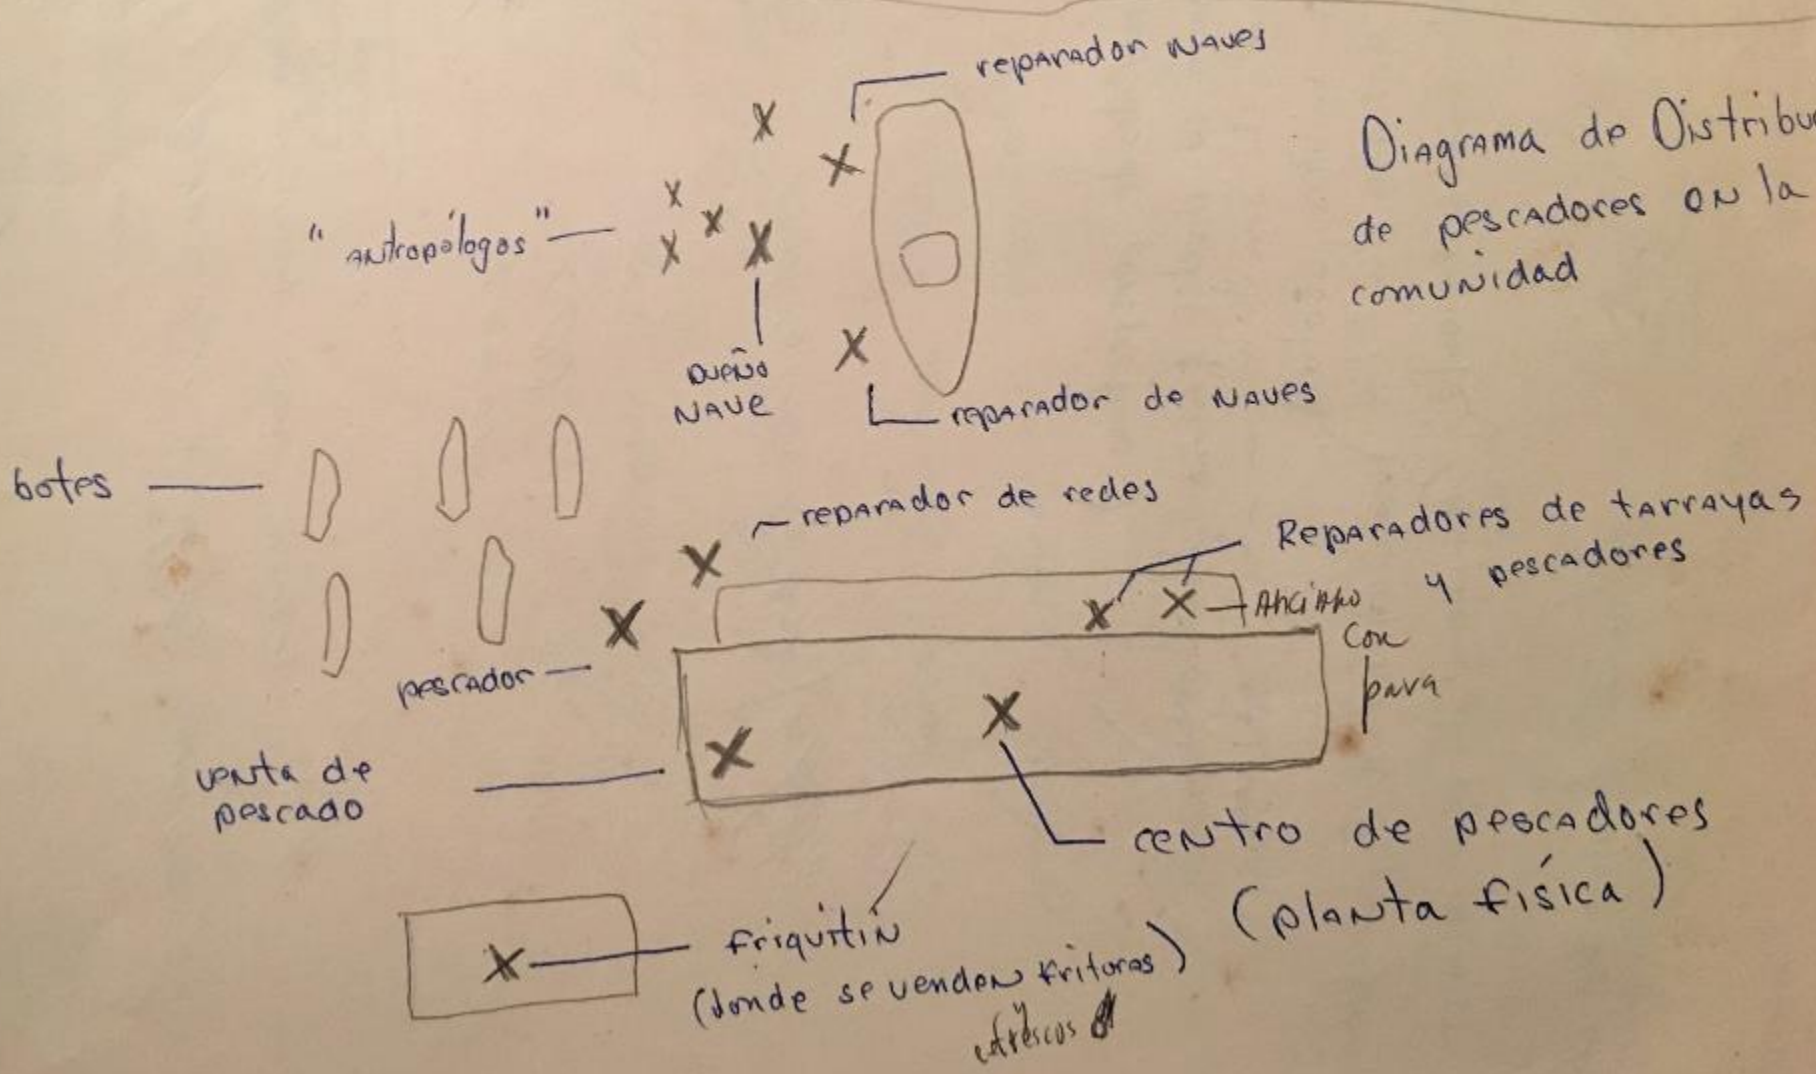 reparador naves
Diagrama de Distribu
de pescadores en la
comunidad
"antropólogos"
dueño
nave
reparador de naves
botes
reparador de redes
Reparadores de tarrayas
y pescadores
Anciano
con
pava
pescador
venta de
pescado
centro de pescadores
(planta física)
friquitín
(donde se venden frituras)
y
refrescos